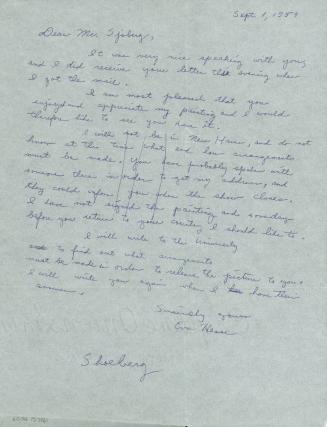 Sept 1, 1959
Dear Mr. Sjoberg,
It was very nice speaking with you,
and I did receive your letter this evening when
I got the mail.
I am most pleased that you
enjoyed and appreciate my painting and I would
therefore like to see you have it.
I will not be in New Haven, and do not
know at this time what and how arrangements
must be made. You have probably spoken with
someone there in order to get my address, and
they could inform you when the show closes.
I have not signed the painting and someday
before you return to your country I should like to.
I will write to the University
to find out what arrangements
must be made in order to release the picture to you.
I will write you again when I have their
answer.
Sincerely yours
Eva Hesse
Shoeberg